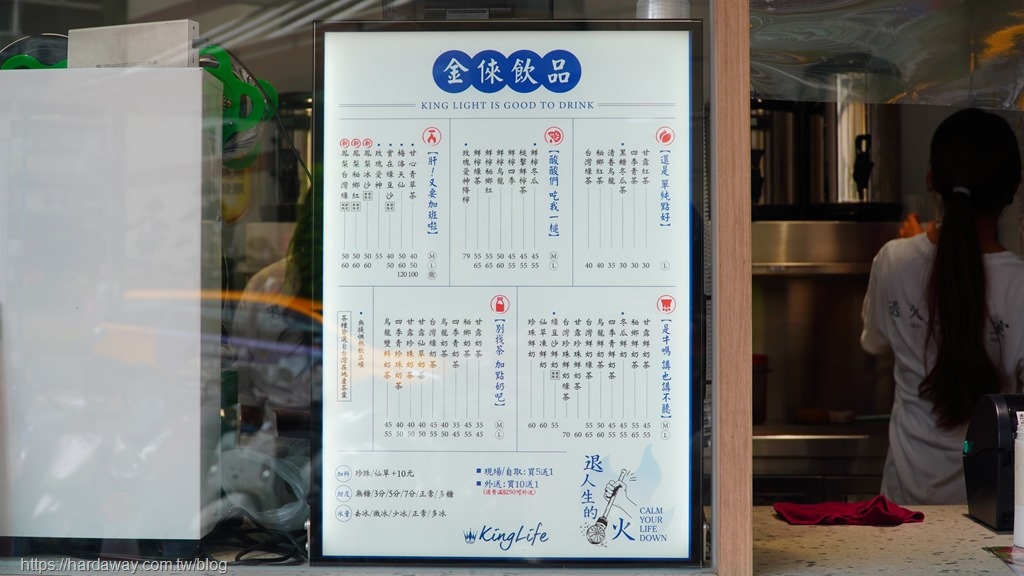 金倈飲品
KING LIGHT IS GOOD TO DRINK
【還是 單純點好】 L
甘露紅茶 30
四季青茶 30
黑糖冬瓜茶 30
清香烏龍 35
秘鄉紅茶 40
台灣綠茶 40
【酸酸們 吃我一槌】 M L
鮮檸冬瓜 45 55
桃擊鮮檸茶 45 55
鮮檸四季 45 55
鮮檸烏龍 50 60
鮮檸秘鄉紅 55 65
鮮檸綠茶 55 65
玫瑰愛神降檸 79
【肝！又要加班啦】 M L 瓶
甘心青草茶 40 50 100
梅洛天仙 50 60 120
實在綠豆沙 40 50
玫瑰愛神 55
新 鳳梨冰沙 50 60
新 鳳梨秘鄉紅 50 60
新 鳳梨台灣綠 50 60
【是牛嗎 講也講不聽】 M L
甘露鮮奶茶 45 55
秘鄉鮮奶茶 55 65
冬瓜鮮奶 45 55
四季鮮青奶茶 45 55
烏龍鮮奶茶 50 60
台灣鮮奶綠茶 55 65
甘露珍珠鮮奶茶 60
台灣珍珠鮮奶綠茶 70
綠豆沙鮮奶 55
仙草凍鮮奶 60
珍珠鮮奶 60
【別找茶 加點奶吧】 M L
甘露奶茶 35 45
秘鄉奶茶 45 55
四季青奶茶 35 45
烏龍奶茶 40 50
台灣綠奶茶 45 55
甘露仙草奶茶 40 50
甘露珍珠奶茶 40 50
四季青珍珠奶茶 40 50
烏龍雙鮮奶茶 45 55
無提供熱飲品項
茶種皆選自台灣在地產茶葉
加料 珍珠/仙草+10元
甜度 無糖/3分/5分/7分/正常/多糖
冰量 去冰/微冰/少冰/正常/多冰
現場/自取:買5送1
外送:買10送1
(消費滿$250可外送)
KingLife
退人生的火
CALM
YOUR
LIFE
DOWN
https://hardaway.com.tw/blog